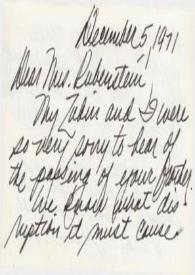 December 5, 1971
Dear Mrs. Rubenstein,
My and I were
so very sorry to hear of
the passing of your
We know what dis
ruption it must cause